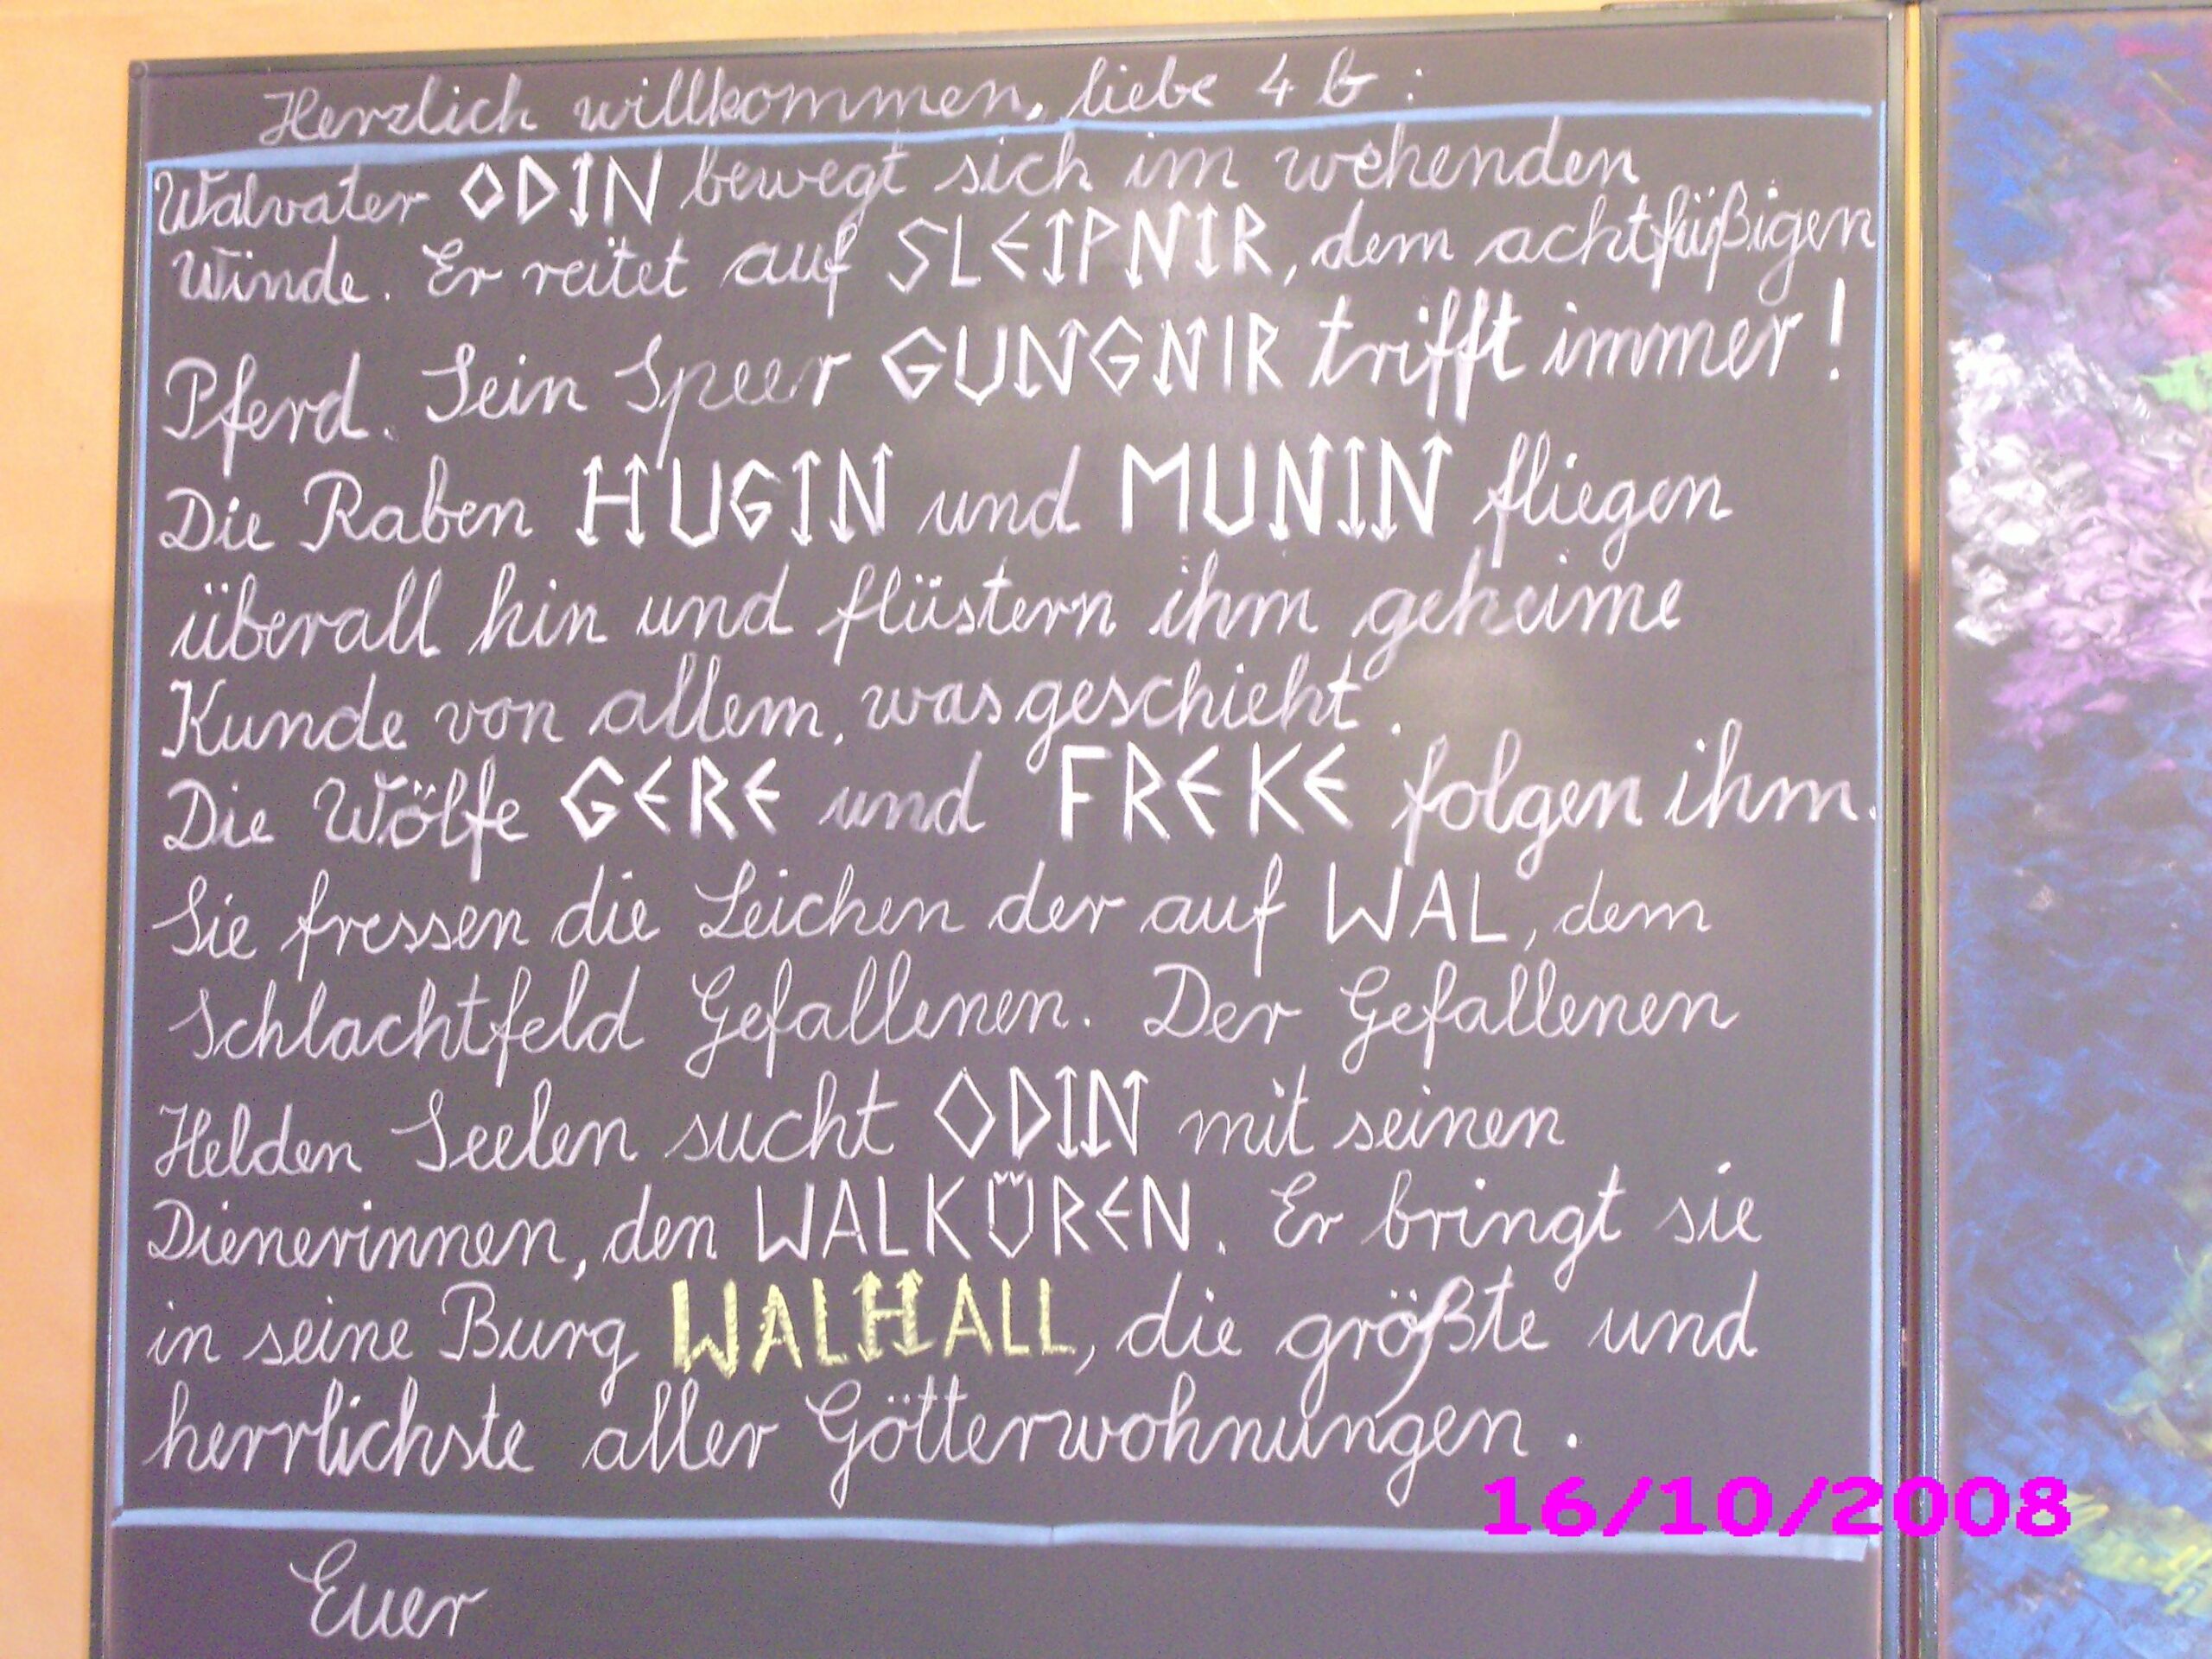 Herzlich willkommen, liebe 4b:
Walvater ODIN bewegt sich im wehenden
Winde. Er reitet auf SLEIPNIR, dem achtfüßigen
Pferd. Sein Speer GUNGNIR trifft immer!
Die Raben HUGIN und MUNIN fliegen
überall hin und flüstern ihm geheime
Kunde von allem, was geschieht.
Die Wölfe GERE und FREKE folgen ihm.
Sie fressen die Leichen der auf WAL, dem
Schlachtfeld Gefallenen. Der Gefallenen
Helden Seelen sucht ODIN mit seinen
Dienerinnen, den WALKÜREN. Er bringt sie
in seine Burg WALHALL, die größte und
herrlichste aller Götterwohnungen.
16/10/2008
Euer